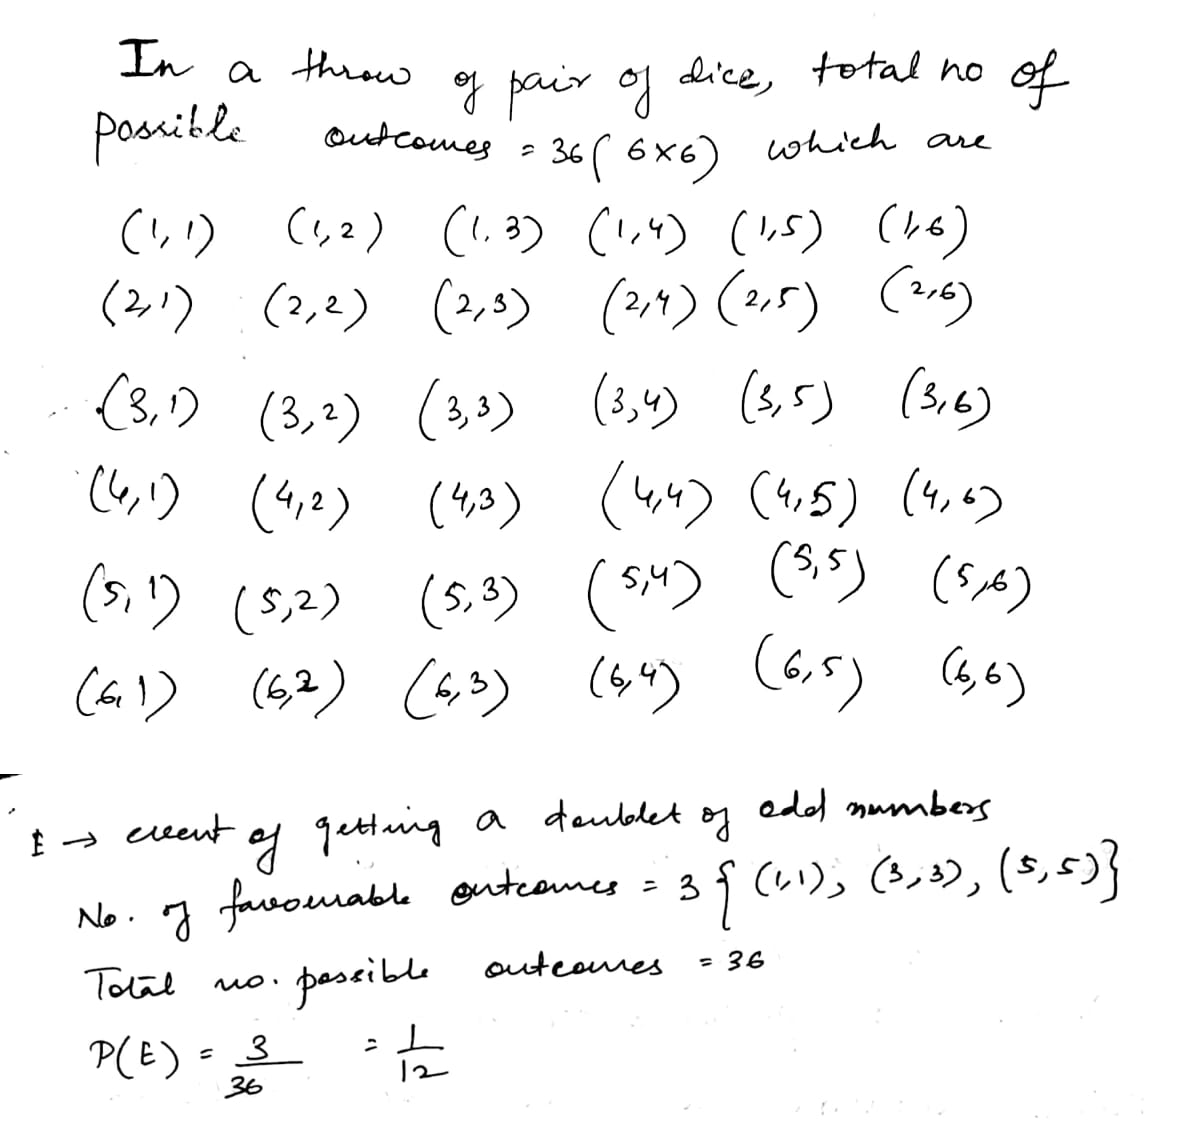 In a throw of pair of dice, total no of
possible outcomes = 36 ( 6×6) which are
(1, 1) (1, 2) (1, 3) (1, 4) (1, 5) (1, 6)
(2, 1) (2, 2) (2, 3) (2, 4) (2, 5) (2, 6)
(3, 1) (3, 2) (3, 3) (3, 4) (3, 5) (3, 6)
(4, 1) (4, 2) (4, 3) (4, 4) (4, 5) (4, 6)
(5, 1) (5, 2) (5, 3) (5, 4) (5, 5) (5, 6)
(6, 1) (6, 2) (6, 3) (6, 4) (6, 5) (6, 6)
E → event of getting a doublet of odd numbers
No. of favourable outcomes = 3 { (1, 1), (3, 3), (5, 5)}
Total no. possible outcomes = 36
P(E) = 3/36 = 1/12